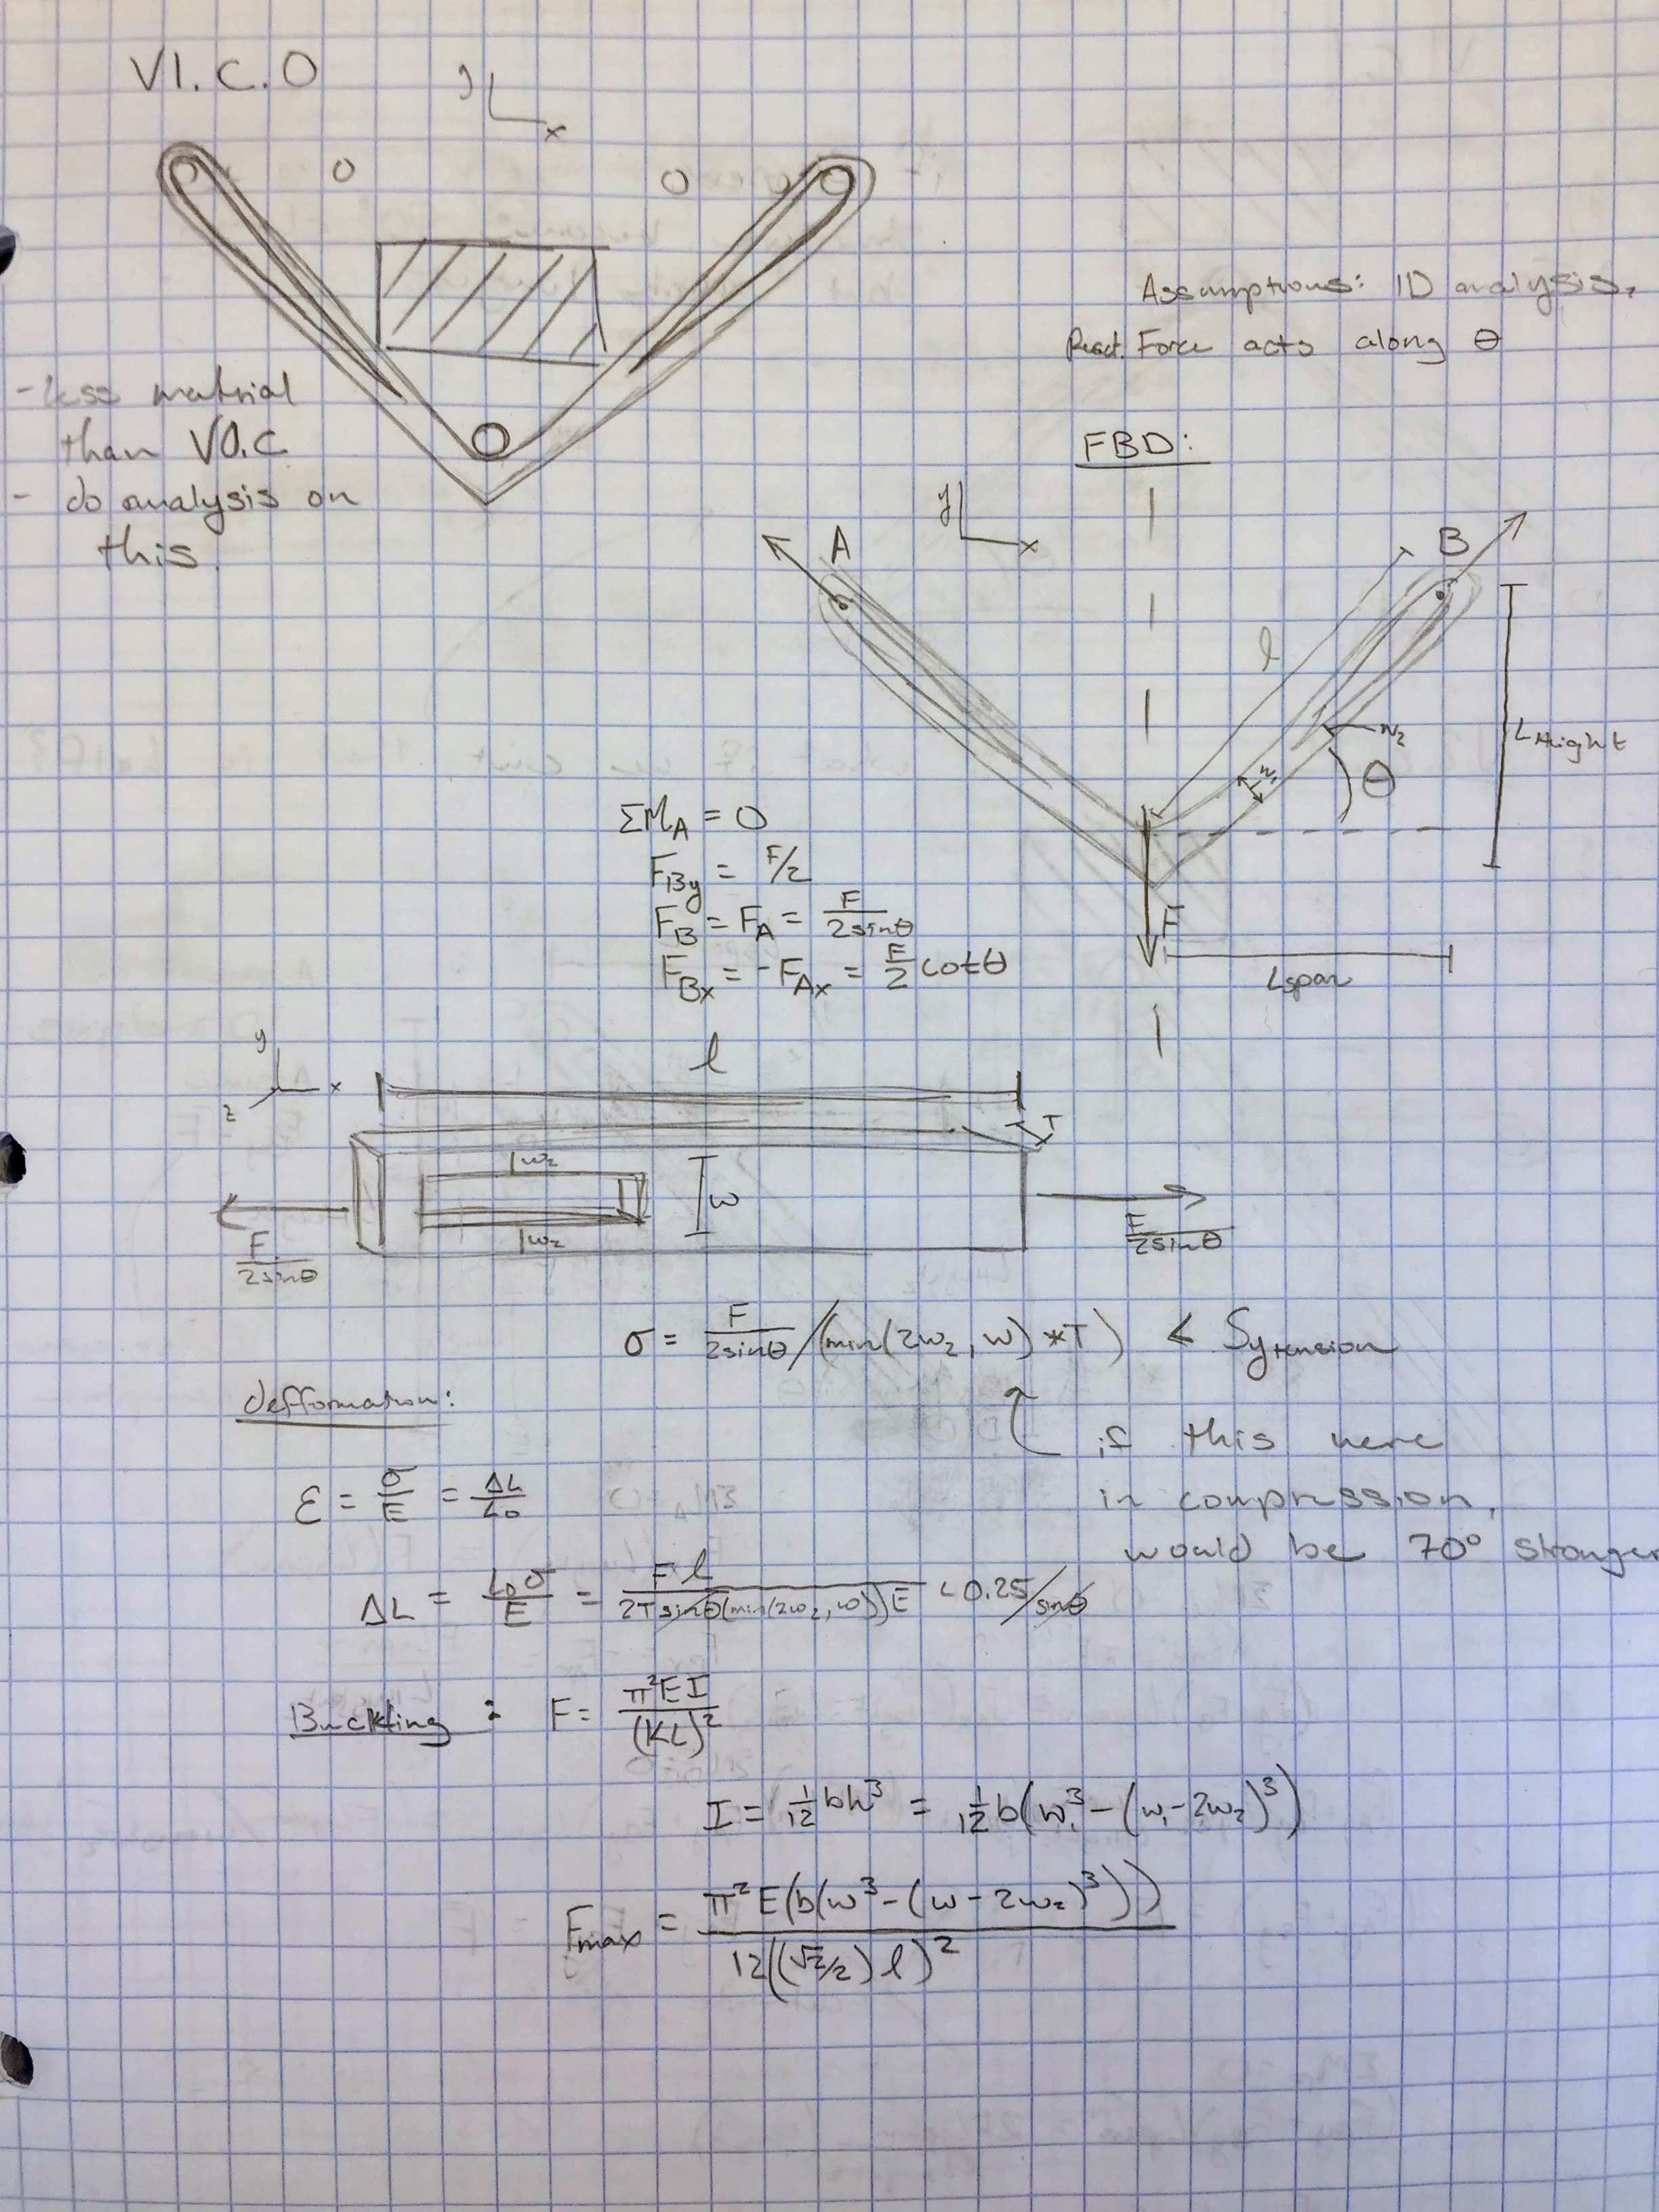 V1.C.0
y
x
Assumptions: 1D analysis,
React. Force acts along θ
- less material
than V0.C
- do analysis on
this.
FBD:
y
x
A
B
l
w₂
w₁
θ
L Height
F
Lspan
ΣM_A = 0
F_By = F/2
F_B = F_A = F/2sinθ
F_Bx = -F_Ax = F/2 cotθ
l
y
x
z
T
w₂
w
w₂
F/2sinθ
F/2sinθ
σ = F/2sinθ /(min(2w₂, w) *T) < Sy tension
if this were
in compression,
would be 70° stronger
defformation:
ε = σ/E = ΔL/L₀
ΔL = L₀σ/E = Fl/2Tsinθ(min(2w₂, w))E < 0.25/sinθ
Buckling : F = π²EI/(KL)²
I = 1/12 bh³ = 1/12 b(w₁³ - (w₁ - 2w₂)³)
Fmax = π²E(b(w³ - (w - 2w₂)³))/12((√2/2)l)²